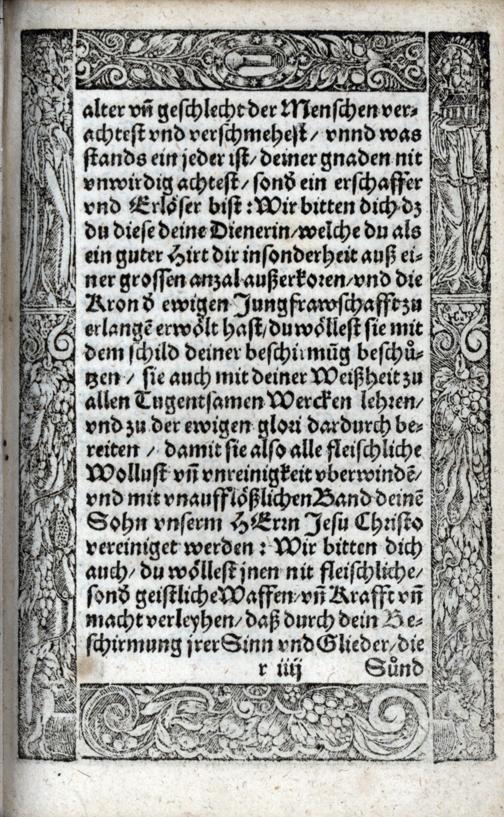 alter vñ geschlecht der Menschen ver-
achtest vnd verschmehest / vnnd was
stands ein jeder ist / deiner gnaden nit
vnwirdig achtest / sonđ ein erschaffer
vnd Erlöser bist : Wir bitten dich / dz
du diese deine Dienerin / welche du als
ein guter Hirt dir insonderheit auß ei-
ner grossen anzal außerkoren / vnd die
Kron đ ewigen Jungfrawschafft zu
erlangē erwölt hast / du wöllest sie mit
dem schild deiner beschirmūg beschů-
tzen / sie auch mit deiner Weißheit zu
allen Tugentsamen Wercken lehren /
vnd zu der ewigen glori dardurch be-
reiten / damit sie also alle fleischliche
Wollust vñ vnreinigkeit vberwindē /
vnd mit vnaufflößlichen Band deinē
Sohn vnserm HErrn Jesu Christo
vereiniget werden : Wir bitten dich
auch / du wöllest jnen nit fleischliche /
sonđ geistliche Waffen / vñ Krafft vñ
macht verleyhen / daß durch dein Be-
schirmung jrer Sinn vnd Glieder / die
r iiij Sůnd